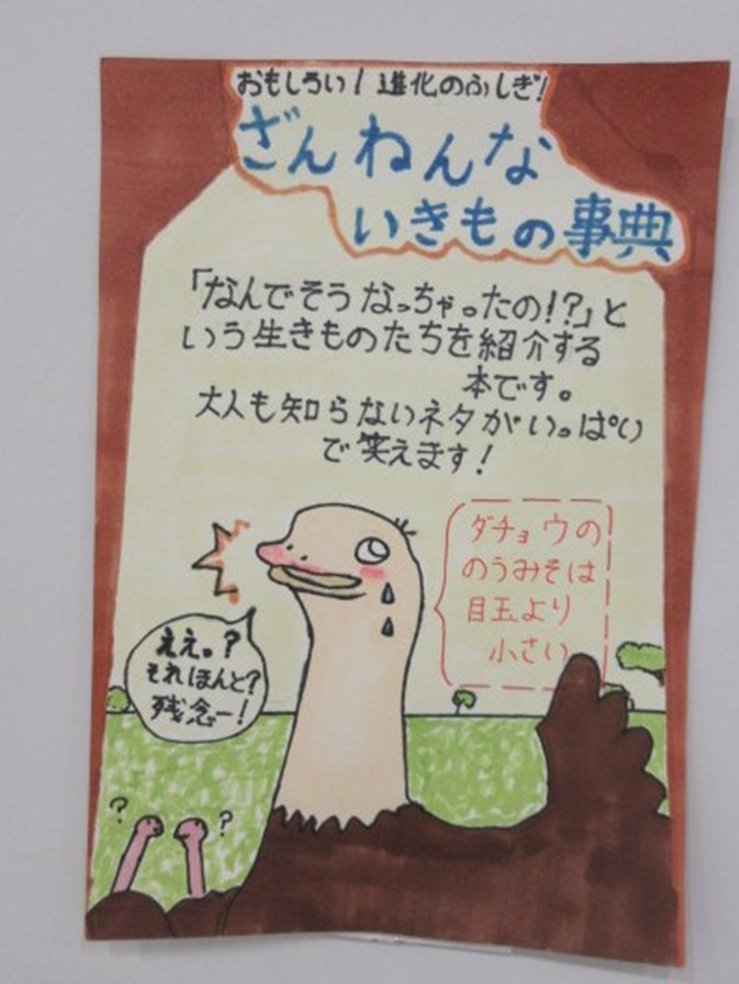 おもしろい!進化のふしぎ!
ざんねんな
いきもの事典
「なんでそうなっちゃったの!?」と
いう生きものたちを紹介する
本です。
大人も知らないネタがいっぱい
で笑えます!
ダチョウの
のうみそは
目玉より
小さい
ええっ?
それほんと?
残念ー!
?
?